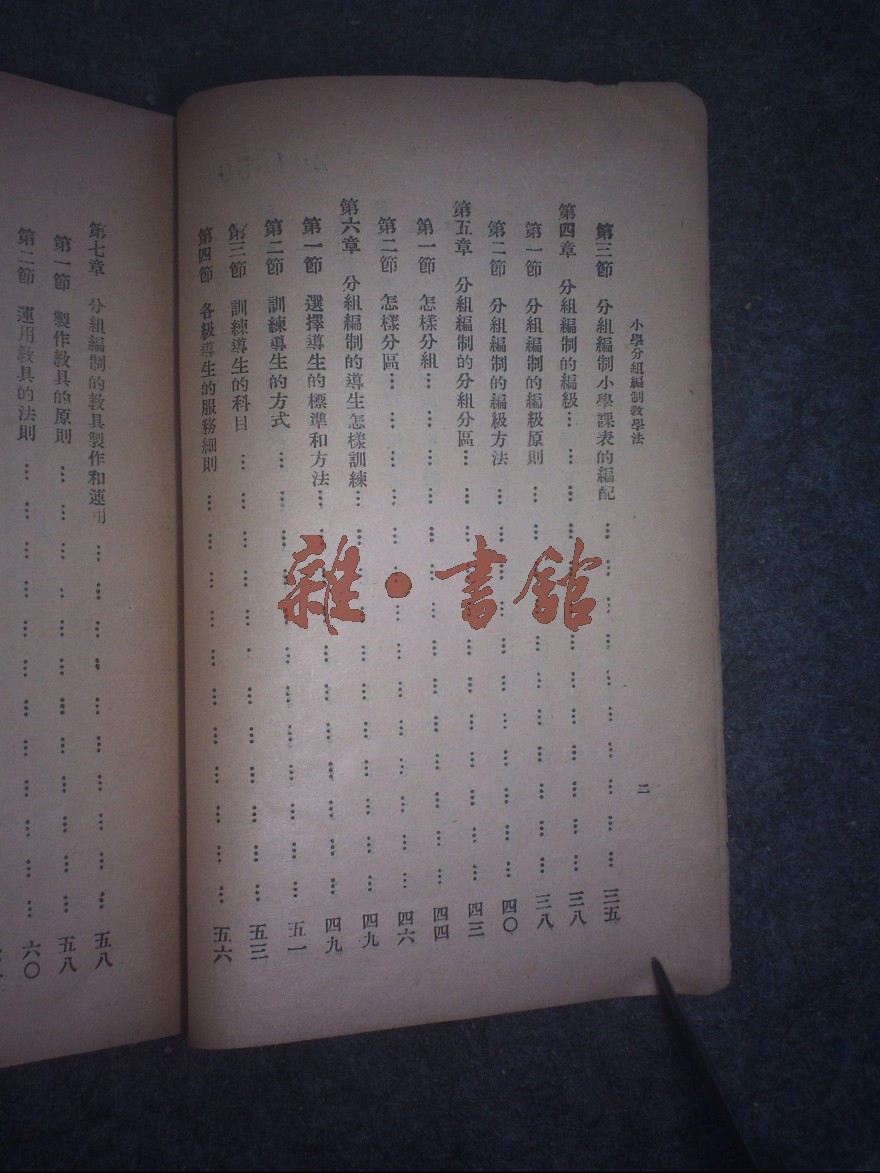 小學分組編制敎學法
二
第三節 分組編制小學課表的編配 … … … … … … … … … … … 三五
第四章 分組編制的編級 … … … … … … … … … … … … … 三八
第一節 分組編制的編級原則 … … … … … … … … … … … … 三八
第二節 分組編制的編級方法 … … … … … … … … … … … … 四〇
第五章 分組編制的分組分區 … … … … … … … … … … … … 四三
第一節 怎樣分組 … … … … … … … … … … … … … … 四四
第二節 怎樣分區 … … … … … … … … … … … … … … 四六
第六章 分組編制的導生怎樣訓練 … … … … … … … … … … … 四九
第一節 選擇導生的標準和方法 … … … … … … … … … … … 四九
第二節 訓練導生的方式 … … … … … … … … … … … … 五一
第三節 訓練導生的科目 … … … … … … … … … … … … 五三
第四節 各級導生的服務細則 … … … … … … … … … … … 五六
第七章 分組編制的敎具製作和運用 … … … … … … … … … … 五八
第一節 製作敎具的原則 … … … … … … … … … … … … 五八
第二節 運用敎具的法則 … … … … … … … … … … … … 六〇
雜·書館